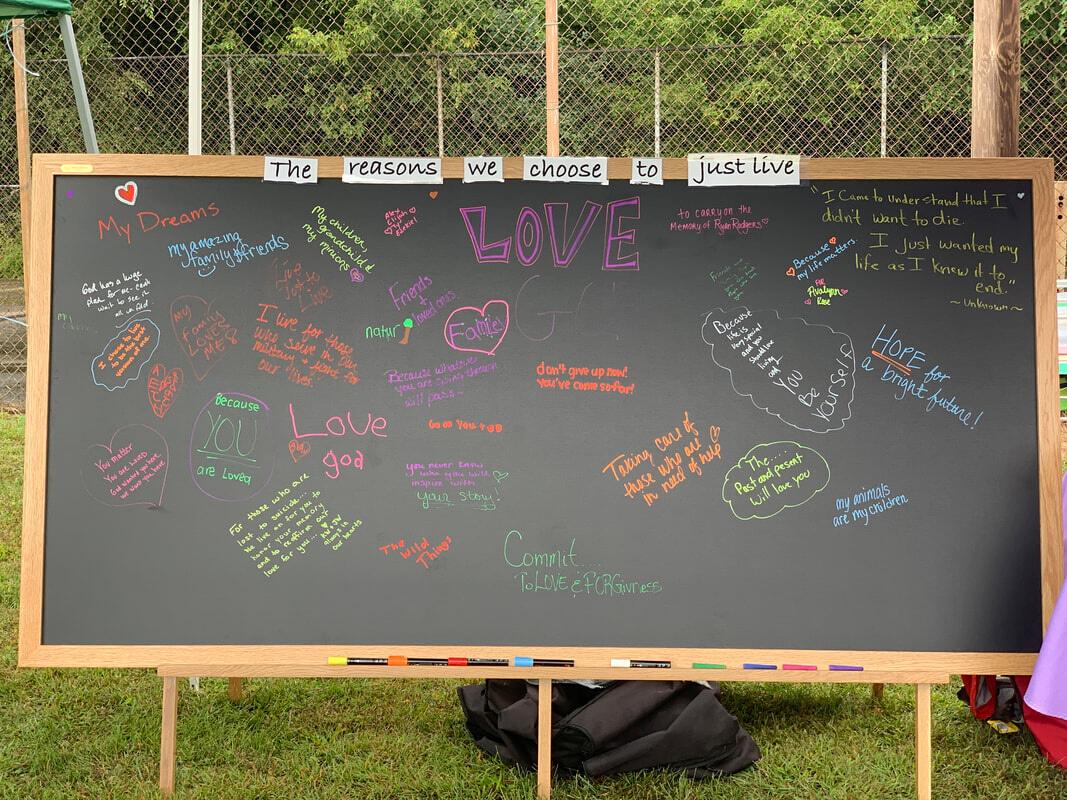 The reasons we choose to just live
My Dreams
my amazing
family & friends
My children,
my grandchild
my minions
Alex
Elijah
Ezekiel
LOVE
to carry on the
Memory of Ryan Rodgers
"I Came to understand that I
didn't want to die.
I just wanted my
life as I knew it to
end."
~ Unknown ~
Because
my life matters.
FOR
Avalynn
Rose
God has a huge
plan for me. Can't
wait to see it
all unfold.
Live
Just to
Live
Friends
+
loved ones
Friends
My
Family
Loves
ME!
I live for those
who serve in our
military + for
our lives.
natur
Family
I choose to live
to be the best
version of me
Because whatever
you are going through
will pass~
don't give up now!
You've come so far!
Because
life is
very special
and you
should love
living
and
YOU
Be
yourself
HOPE for
a bright future!
Because
YOU
are Loved
Love
god
God
You matter
You are loved
God wanted you here
you never know
who your will
inspire with
your story!
Taking care of
those who are
in need of help
The....
Past and present
will love you
my animals
are my children
For those who are
lost to suicide...
We live on for you to
honor your memory
and to reaffirm our
love for you...
always in
our hearts
The Wild
Things
Commit....
To LOVE & FORGivness